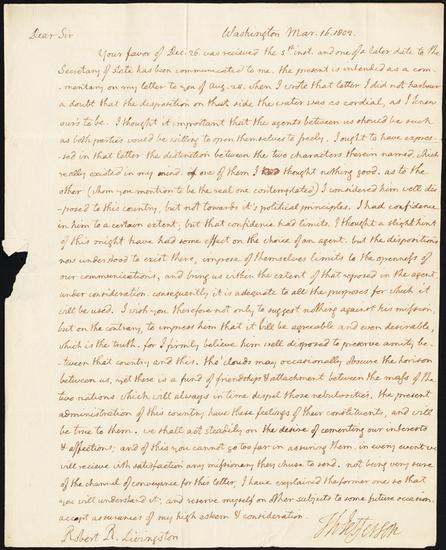 Dear Sir Washington Mar. 16. 1802.
Your favor of Dec. 26. was recieved the 5th inst. and one of a later date to the
Secretary of state has been communicated to me. the present is intended as a com-
-mentary on my letter to you of Aug. 28. when I wrote that letter I did not harbour
a doubt that the disposition on that side the water was as cordial, as I knew
ours to be. I thought it important that the agents between us should be such
as both parties would be willing to open themselves to freely. I ought to have expres-
-sed in that letter the distinction between the two characters therein named, which
really existed in my mind. of one of them I thought nothing good. as to the
other (whom you mention to be the real one contemplated) I considered him well dis-
-posed to this country, but not towards it's political principles. I had confidence
in him to a certain extent, but that confidence had limits. I thought a slight hint
of this might have had some effect on the choice of an agent. but the dispositions
now understood to exist there, impose of themselves limits to the openness of
our communications, and bring us within the extent of that reposed in the agent
under consideration. consequently it is adequate to all the purposes for which it
will be used. I wish you therefore not only to suggest nothing against his mission,
but on the contrary, to impress them that it will be agreeable and even desireable,
which is the truth. for I firmly believe him well disposed to preserve amity be-
-tween that country and this. tho' clouds may occasionally obscure the horison
between us, yet there is a fund of friendship & attachment between the mass of the
two nations which will always in time dispel those nebulosities. the present
administration of this country have these feelings of their constituents, and will
be true to them. we shall act steadily on the desire of cementing our interests
& affections; and of this you cannot go too far in assuring them. in every event we
will recieve with satisfaction any missionary they chuse to send. not being very sure
of the channel of conveyance for this letter, I have explained the former one so that
you will understand it; and reserve myself on other subjects to some future occasion.
accept assurances of my high esteem & consideration.
Th: Jefferson
Robert R. Livingston